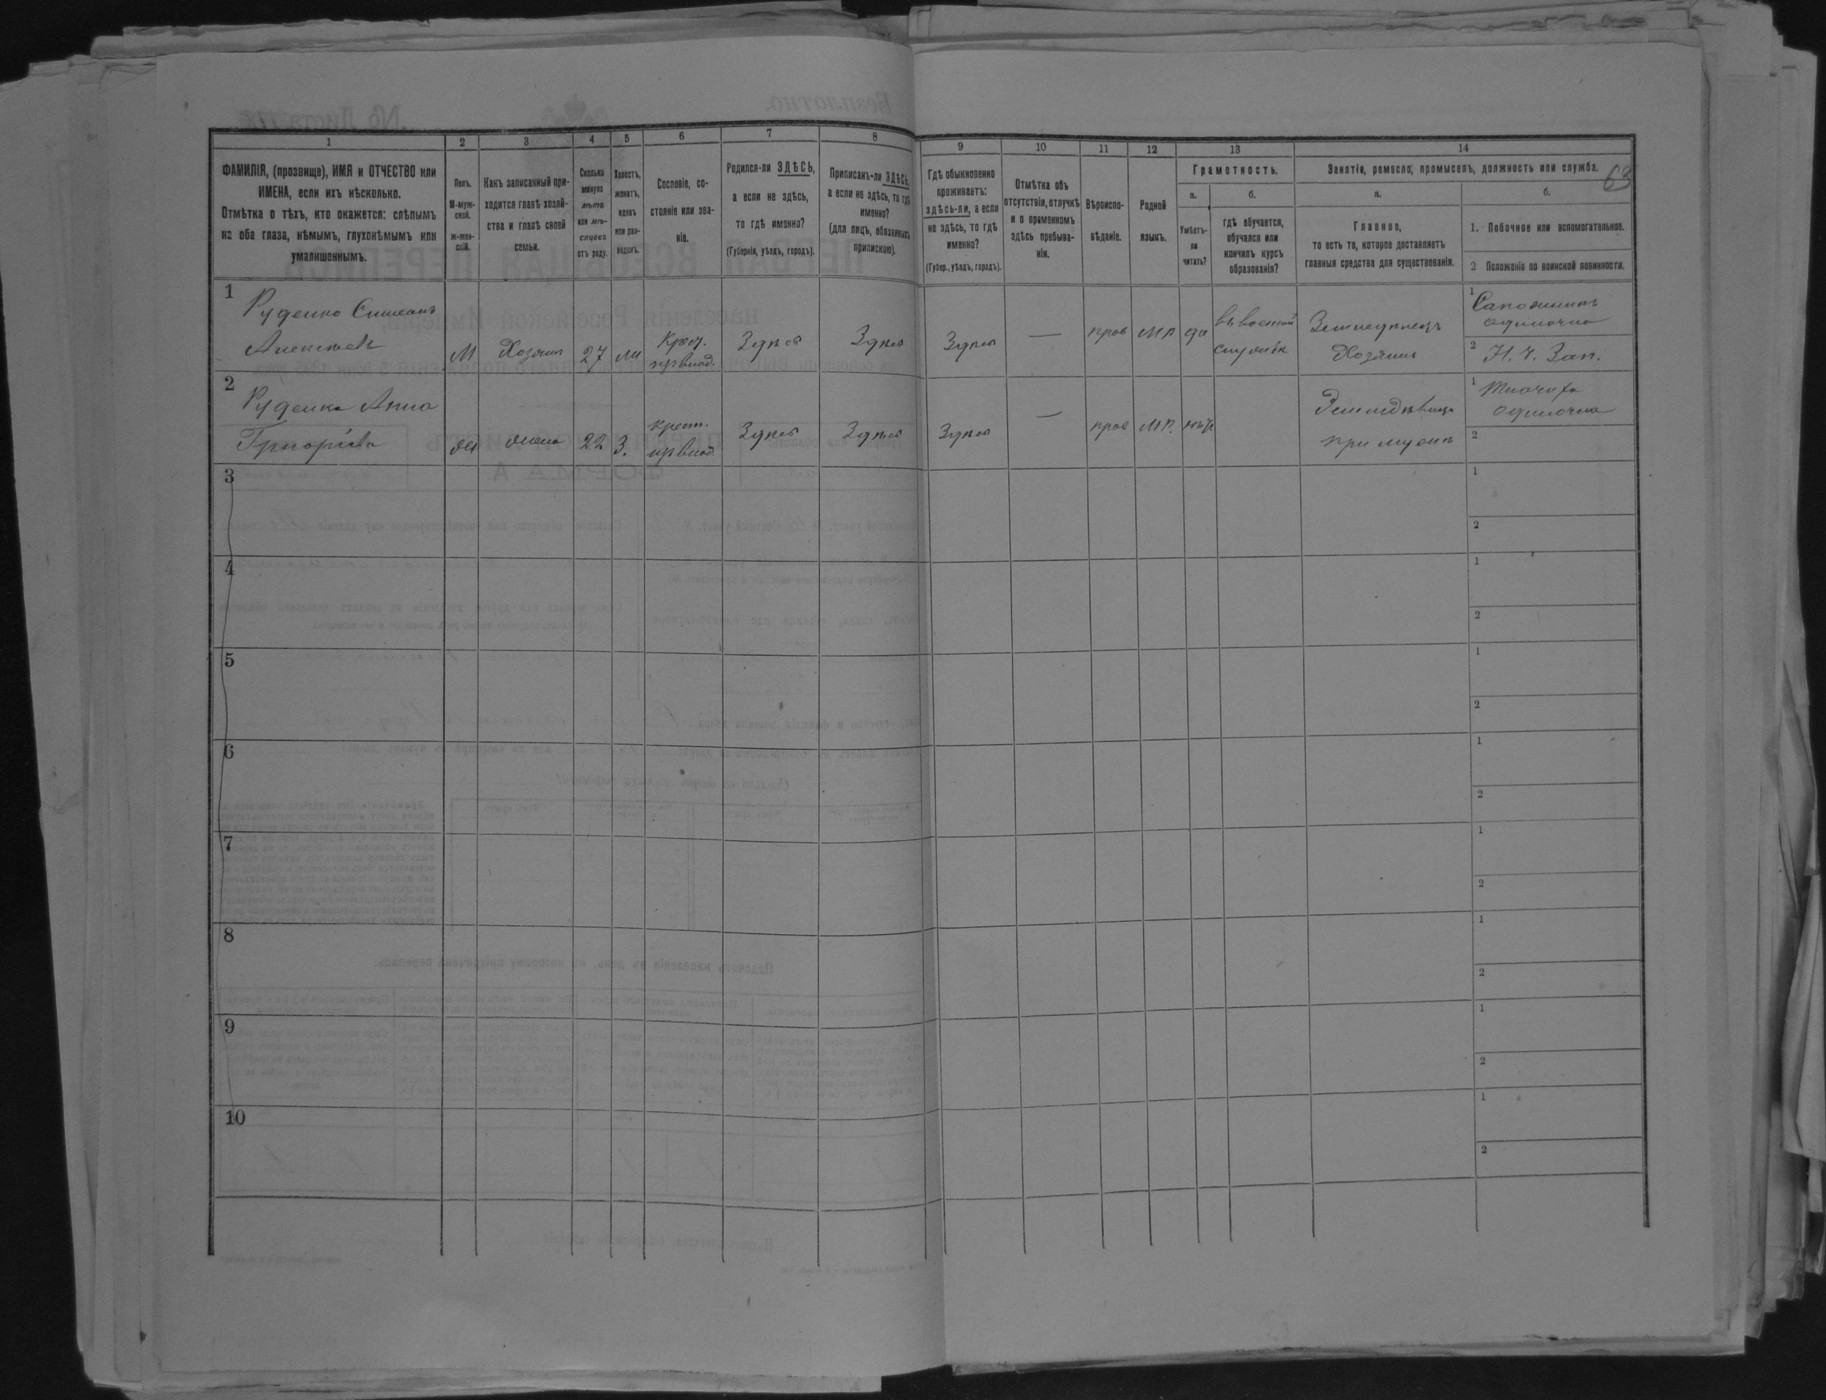 1 2 3 4 5 6 7 8 9 10 11 12 13 14
ФАМИЛІЯ, (прозвище), ИМЯ и ОТЧЕСТВО или
ИМЕНА, если ихъ нѣсколько.
Отмѣтка о тѣхъ, кто окажется: слѣпымъ
на оба глаза, нѣмымъ, глухонѣмымъ или
умалишеннымъ.
Полъ.
М-муж-
ской.
ж-жен-
скій.
Какъ записанный при-
ходится главѣ хозяй-
ства и главѣ своей
семьи.
Сколько
минуло
лѣтъ
или мѣ-
сяцевъ
отъ роду.
Холостъ,
женатъ,
вдовъ
или раз-
веденъ.
Сословіе, со-
стояніе или зва-
ніе.
Родился-ли ЗДѢСЬ,
а если не здѣсь,
то гдѣ именно?
(Губернія, уѣздъ, городъ).
Приписанъ-ли ЗДѢСЬ,
а если не здѣсь, то гдѣ
именно?
(для лицъ, обязанныхъ
припискою).
Гдѣ обыкновенно
проживаетъ:
здѣсь-ли, а если
не здѣсь, то гдѣ
именно?
(Губер., уѣздъ, городъ).
Отмѣтка объ
отсутствіи, отлучкѣ
и о временномъ
здѣсь пребыва-
ніи.
Вѣроиспо-
вѣданіе.
Родной
языкъ.
Грамотность.
а.
Умѣетъ-
ли
читать?
б.
гдѣ обучается,
обучался или
кончилъ курсъ
образованія?
Занятіе, ремесло, промыселъ, должность или служба.
63
а.
Главное,
то есть то, которое доставляетъ
главныя средства для существованія.
б.
1. Побочное или вспомогательное.
2 Положеніе по воинской повинности.
1
Руденко Симеонъ
Алексѣевъ
М
Хозяинъ
27
Крест.
Здѣсь
Здѣсь
Здѣсь
—
прав
М.Р.
да
въ военной
службѣ
Земледѣлецъ
Хозяинъ
1 Сапожникъ
одиночка
2 Н. Ч. Зап.
2
Руденко Анна
Григорьева
Ж
жена
22
З.
крест.
Здѣсь
Здѣсь
Здѣсь
—
прав
М.Р.
нѣтъ
при мужѣ
1 Ткачиха
одиночка
2
3 1
2
4 1
2
5 1
2
6 1
2
7 1
2
8 1
2
9 1
2
10 1
2